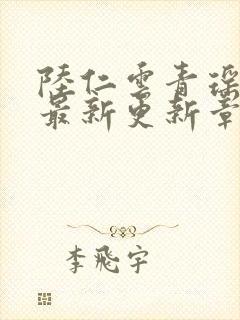 陸仁雲青瑤
最新更新章
李飛宇